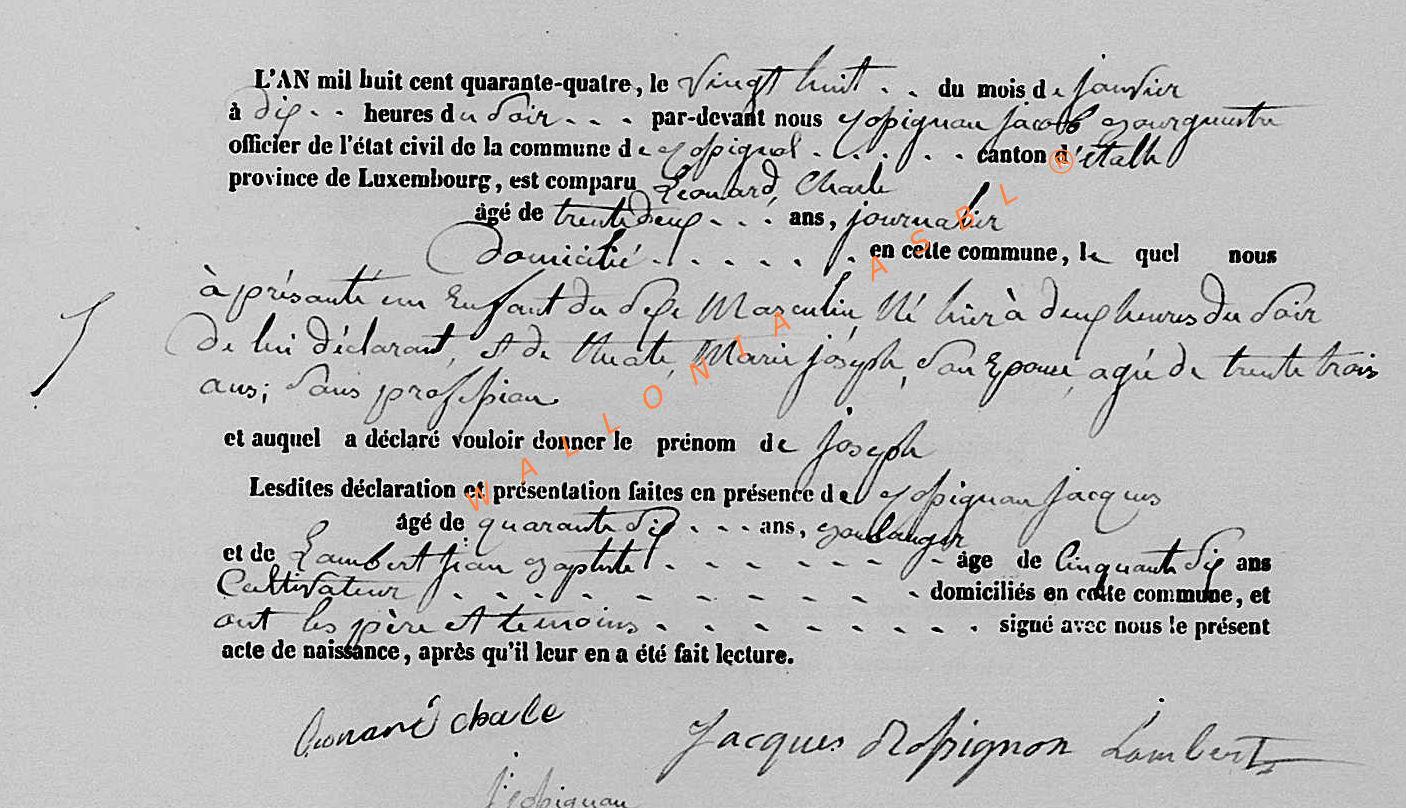 L'AN mil huit cent quarante-quatre, le vingt huit . . du mois de janvier
à dix . . heures du soir . . . par-devant nous Rossignon jacob Bourguestre
officier de l'état civil de la commune de Rossignol . . . . . . canton d'étalle
province de Luxembourg, est comparu Léonard, Charle
âgé de trente deux . . . ans, journalier
Domicilié . . . . . . . en cette commune, le quel nous
à présanté un Enfant du sexe Masculin, Né hier à deux heures du soir
De lui déclarant, et de Marie joseph, son Epouse, agée de trente trois
ans; sans profession.
et auquel a déclaré vouloir donner le prénom de joseph
Lesdites déclaration et présentation faites en présence de Rossignon jacques
âgé de quarante six . . . ans, Boulanger
et de Lambert jean Baptiste . . . . . . . . âge de Cinquante six ans
Cultivateur . . . . . . . . . . domiciliés en cette commune, et
ont les père et temoins . . . . . . . . . signé avec nous le présent
acte de naissance, après qu'il leur en a été fait lecture.
Leonard charle Jacques Rossignon Lambert
j Rossignon
WALLONIA ASBL ®